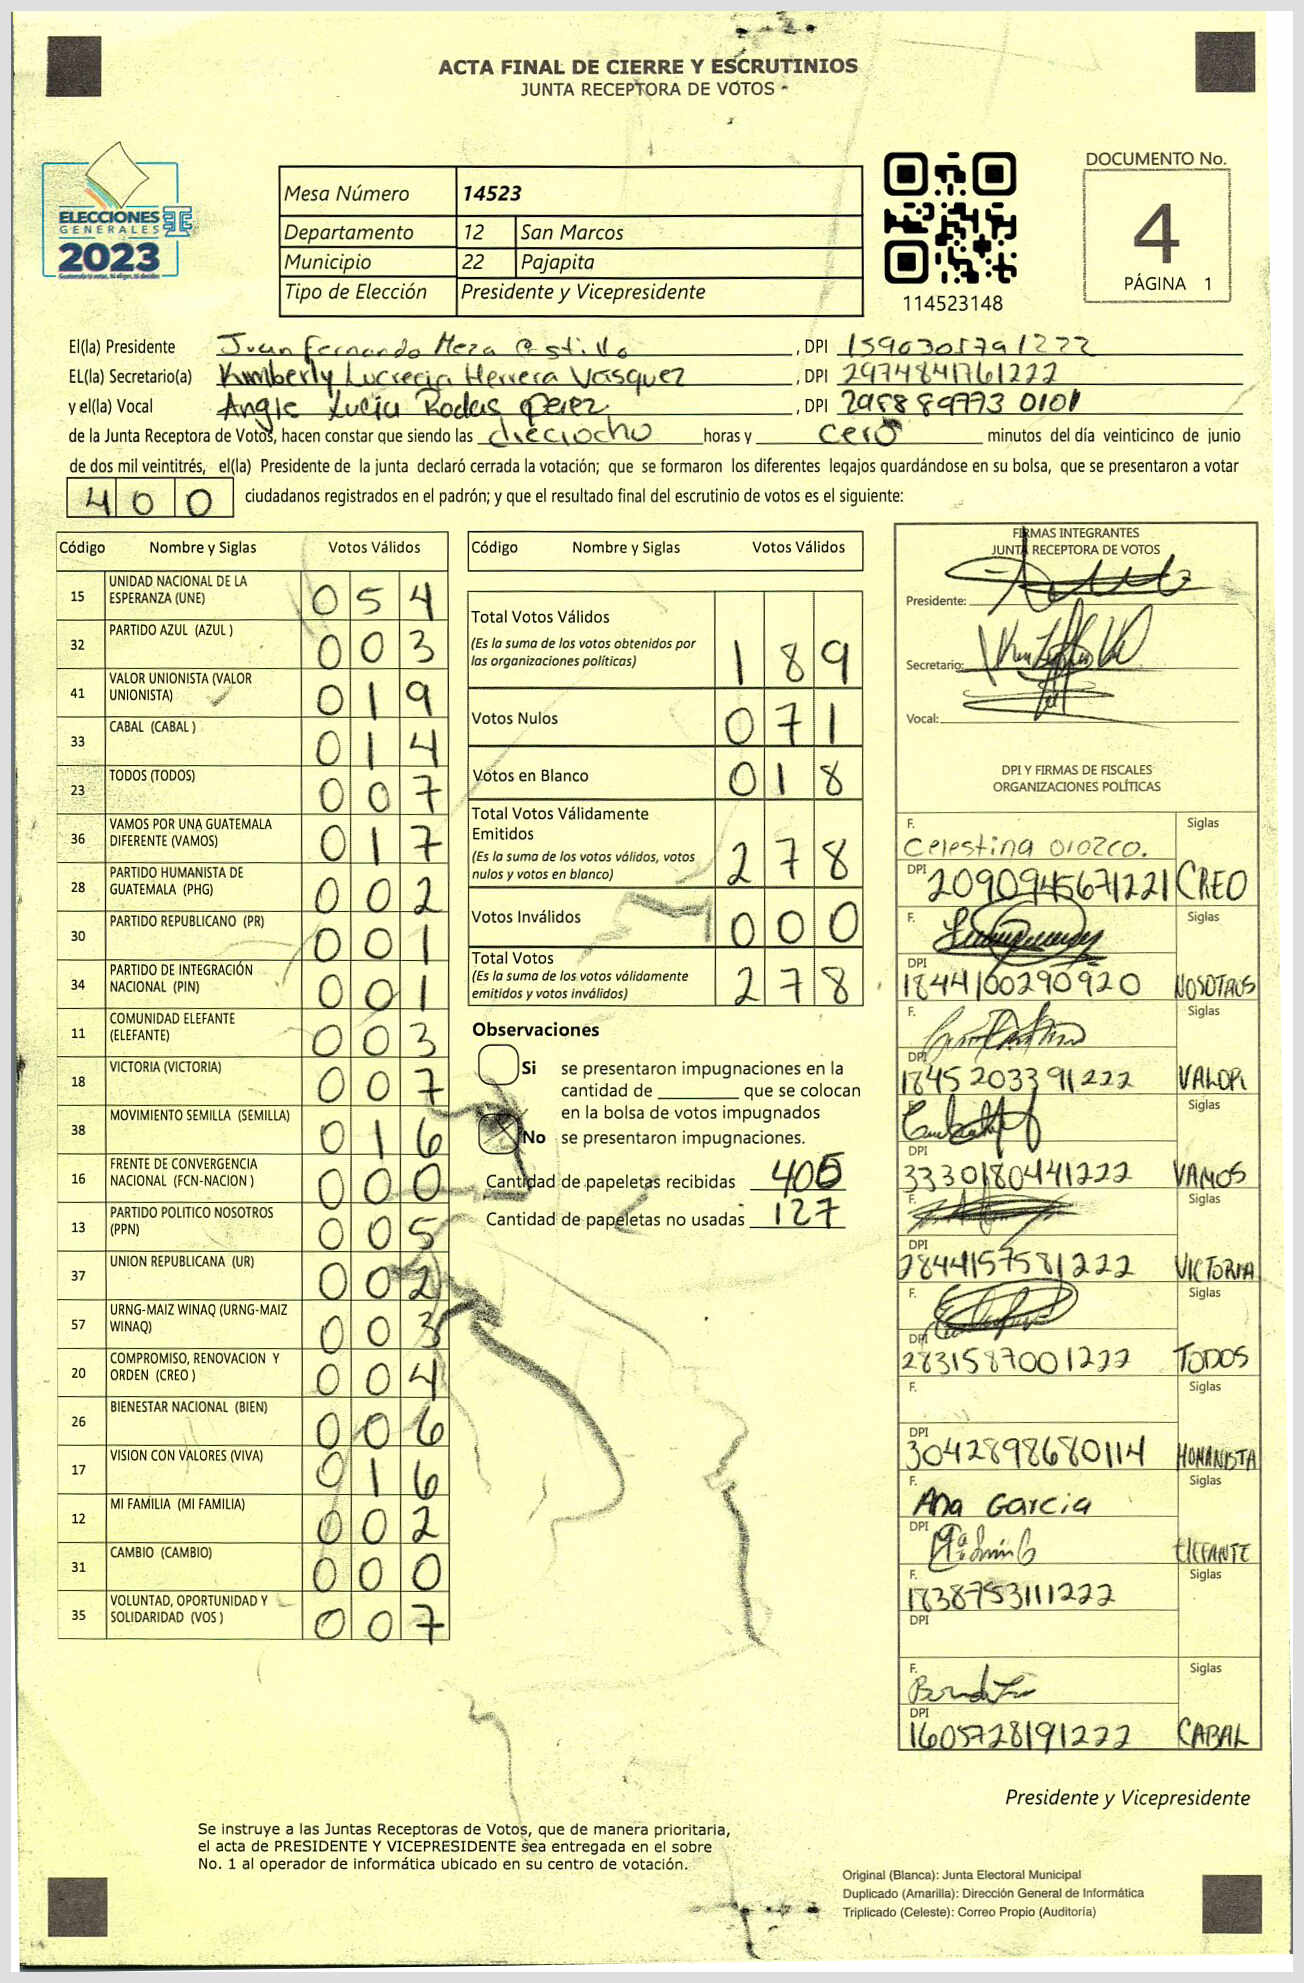 ACTA FINAL DE CIERRE Y ESCRUTINIOS
JUNTA RECEPTORA DE VOTOS
ELECCIONES
GENERALES
2023
Mesa Número 14523
Departamento 12 San Marcos
Municipio 22 Pajapita
Tipo de Elección Presidente y Vicepresidente
114523148
DOCUMENTO No.
4
PÁGINA 1
El(la) Presidente Juan Fernando Meza Castillo, DPI
EL(la) Secretario(a) Kimberly Lucrecia Herrera Vasquez, DPI 2974841761222
y el(la) Vocal Angie Lucia Rodas perez, DPI 2988897730101
de la Junta Receptora de Votos, hacen constar que siendo las dieciocho horas y cero minutos del día veinticinco de junio
de dos mil veintitrés, el(la) Presidente de la junta declaró cerrada la votación; que se formaron los diferentes legajos guardándose en su bolsa, que se presentaron a votar
400 ciudadanos registrados en el padrón; y que el resultado final del escrutinio de votos es el siguiente:
Código Nombre y Siglas Votos Válidos
15 UNIDAD NACIONAL DE LA
ESPERANZA (UNE) 054
32 PARTIDO AZUL (AZUL ) 003
41 VALOR UNIONISTA (VALOR
UNIONISTA) 019
33 CABAL (CABAL ) 014
23 TODOS (TODOS) 007
36 VAMOS POR UNA GUATEMALA
DIFERENTE (VAMOS) 017
28 PARTIDO HUMANISTA DE
GUATEMALA (PHG) 002
30 PARTIDO REPUBLICANO (PR) 001
34 PARTIDO DE INTEGRACIÓN
NACIONAL (PIN) 001
11 COMUNIDAD ELEFANTE
(ELEFANTE) 003
18 VICTORIA (VICTORIA) 007
38 MOVIMIENTO SEMILLA (SEMILLA) 016
16 FRENTE DE CONVERGENCIA
NACIONAL (FCN-NACION ) 000
13 PARTIDO POLITICO NOSOTROS
(PPN) 005
37 UNION REPUBLICANA (UR) 002
57 URNG-MAIZ WINAQ (URNG-MAIZ
WINAQ) 003
20 COMPROMISO, RENOVACION Y
ORDEN (CREO ) 004
26 BIENESTAR NACIONAL (BIEN) 006
17 VISION CON VALORES (VIVA) 016
12 MI FAMILIA (MI FAMILIA) 002
31 CAMBIO (CAMBIO) 000
35 VOLUNTAD, OPORTUNIDAD Y
SOLIDARIDAD (VOS ) 007
Código Nombre y Siglas Votos Válidos
Total Votos Válidos
(Es la suma de los votos obtenidos por
las organizaciones políticas) 189
Votos Nulos 071
Votos en Blanco 018
Total Votos Válidamente
Emitidos
(Es la suma de los votos válidos, votos
nulos y votos en blanco) 278
Votos Inválidos 000
Total Votos
(Es la suma de los votos válidamente
emitidos y votos inválidos) 278
Observaciones
Si se presentaron impugnaciones en la
cantidad de ________ que se colocan
en la bolsa de votos impugnados
No se presentaron impugnaciones.
Cantidad de papeletas recibidas 405
Cantidad de papeletas no usadas 127
FIRMAS INTEGRANTES
JUNTA RECEPTORA DE VOTOS
Presidente:
Secretario:
Vocal:
DPI Y FIRMAS DE FISCALES
ORGANIZACIONES POLÍTICAS
F. Siglas
Celestina orozco.
DPI 2090945671221 CREO
F. Siglas
DPI
1844100290920 NOSOTROS
F. Siglas
DPI
1845203391222 VALOR
F. Siglas
DPI
3330180441222 VAMOS
F. Siglas
DPI
2844157581222 VICTORIA
F. Siglas
DPI
2831587001222 TODOS
F. Siglas
DPI
3042898680114 HUMANISTA
F. Siglas
Ana Garcia
DPI
ELEFANTE
F. Siglas
1838753111222
DPI
F. Siglas
DPI
1605728191222 CABAL
Presidente y Vicepresidente
Se instruye a las Juntas Receptoras de Votos, que de manera prioritaria,
el acta de PRESIDENTE Y VICEPRESIDENTE sea entregada en el sobre
No. 1 al operador de informática ubicado en su centro de votación.
Original (Blanca): Junta Electoral Municipal
Duplicado (Amarilla): Dirección General de Informática
Triplicado (Celeste): Correo Propio (Auditoría)